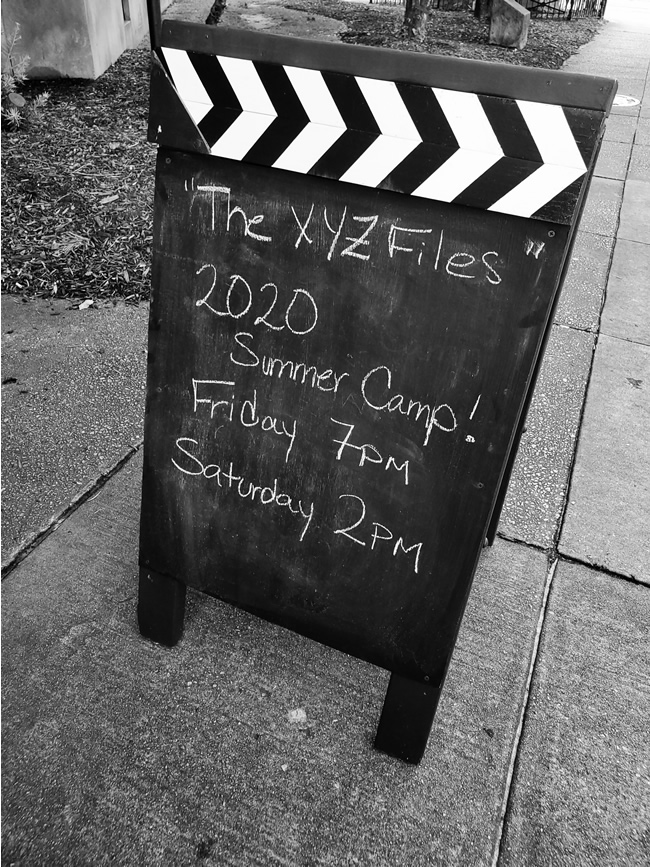 "The XYZ Files"
2020
Summer Camp!
Friday 7PM
Saturday 2PM